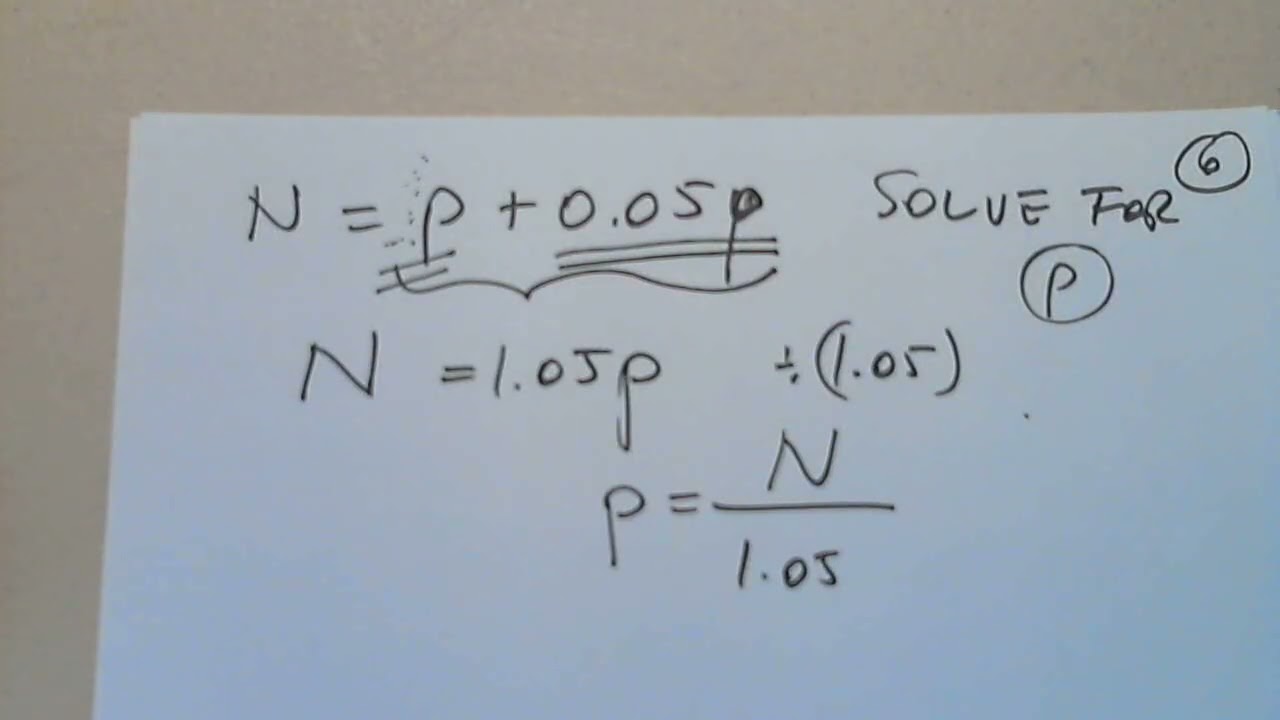 N = p + 0.05p SOLVE FOR 6
p
N = 1.05p ÷(1.05)
p = N
1.05